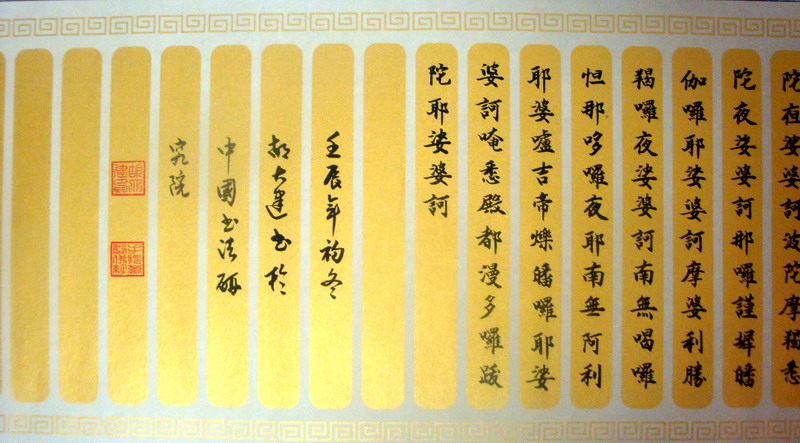 陀夜娑婆訶波陀摩羯悉
陀夜娑婆訶那囉謹墀皤
伽囉耶娑婆訶摩婆利勝
羯囉夜娑婆訶南無喝囉
怛那哆囉夜耶南無阿利
耶婆廬吉帝爍皤囉耶娑
婆訶唵悉殿都漫多囉跋
陀耶娑婆訶
壬辰年初冬
大建书於
中國书法研
究院